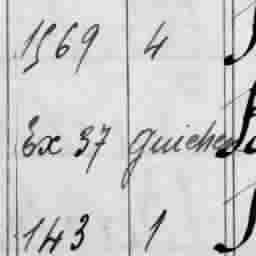 1569 4
Ex 37 guichen
143 1